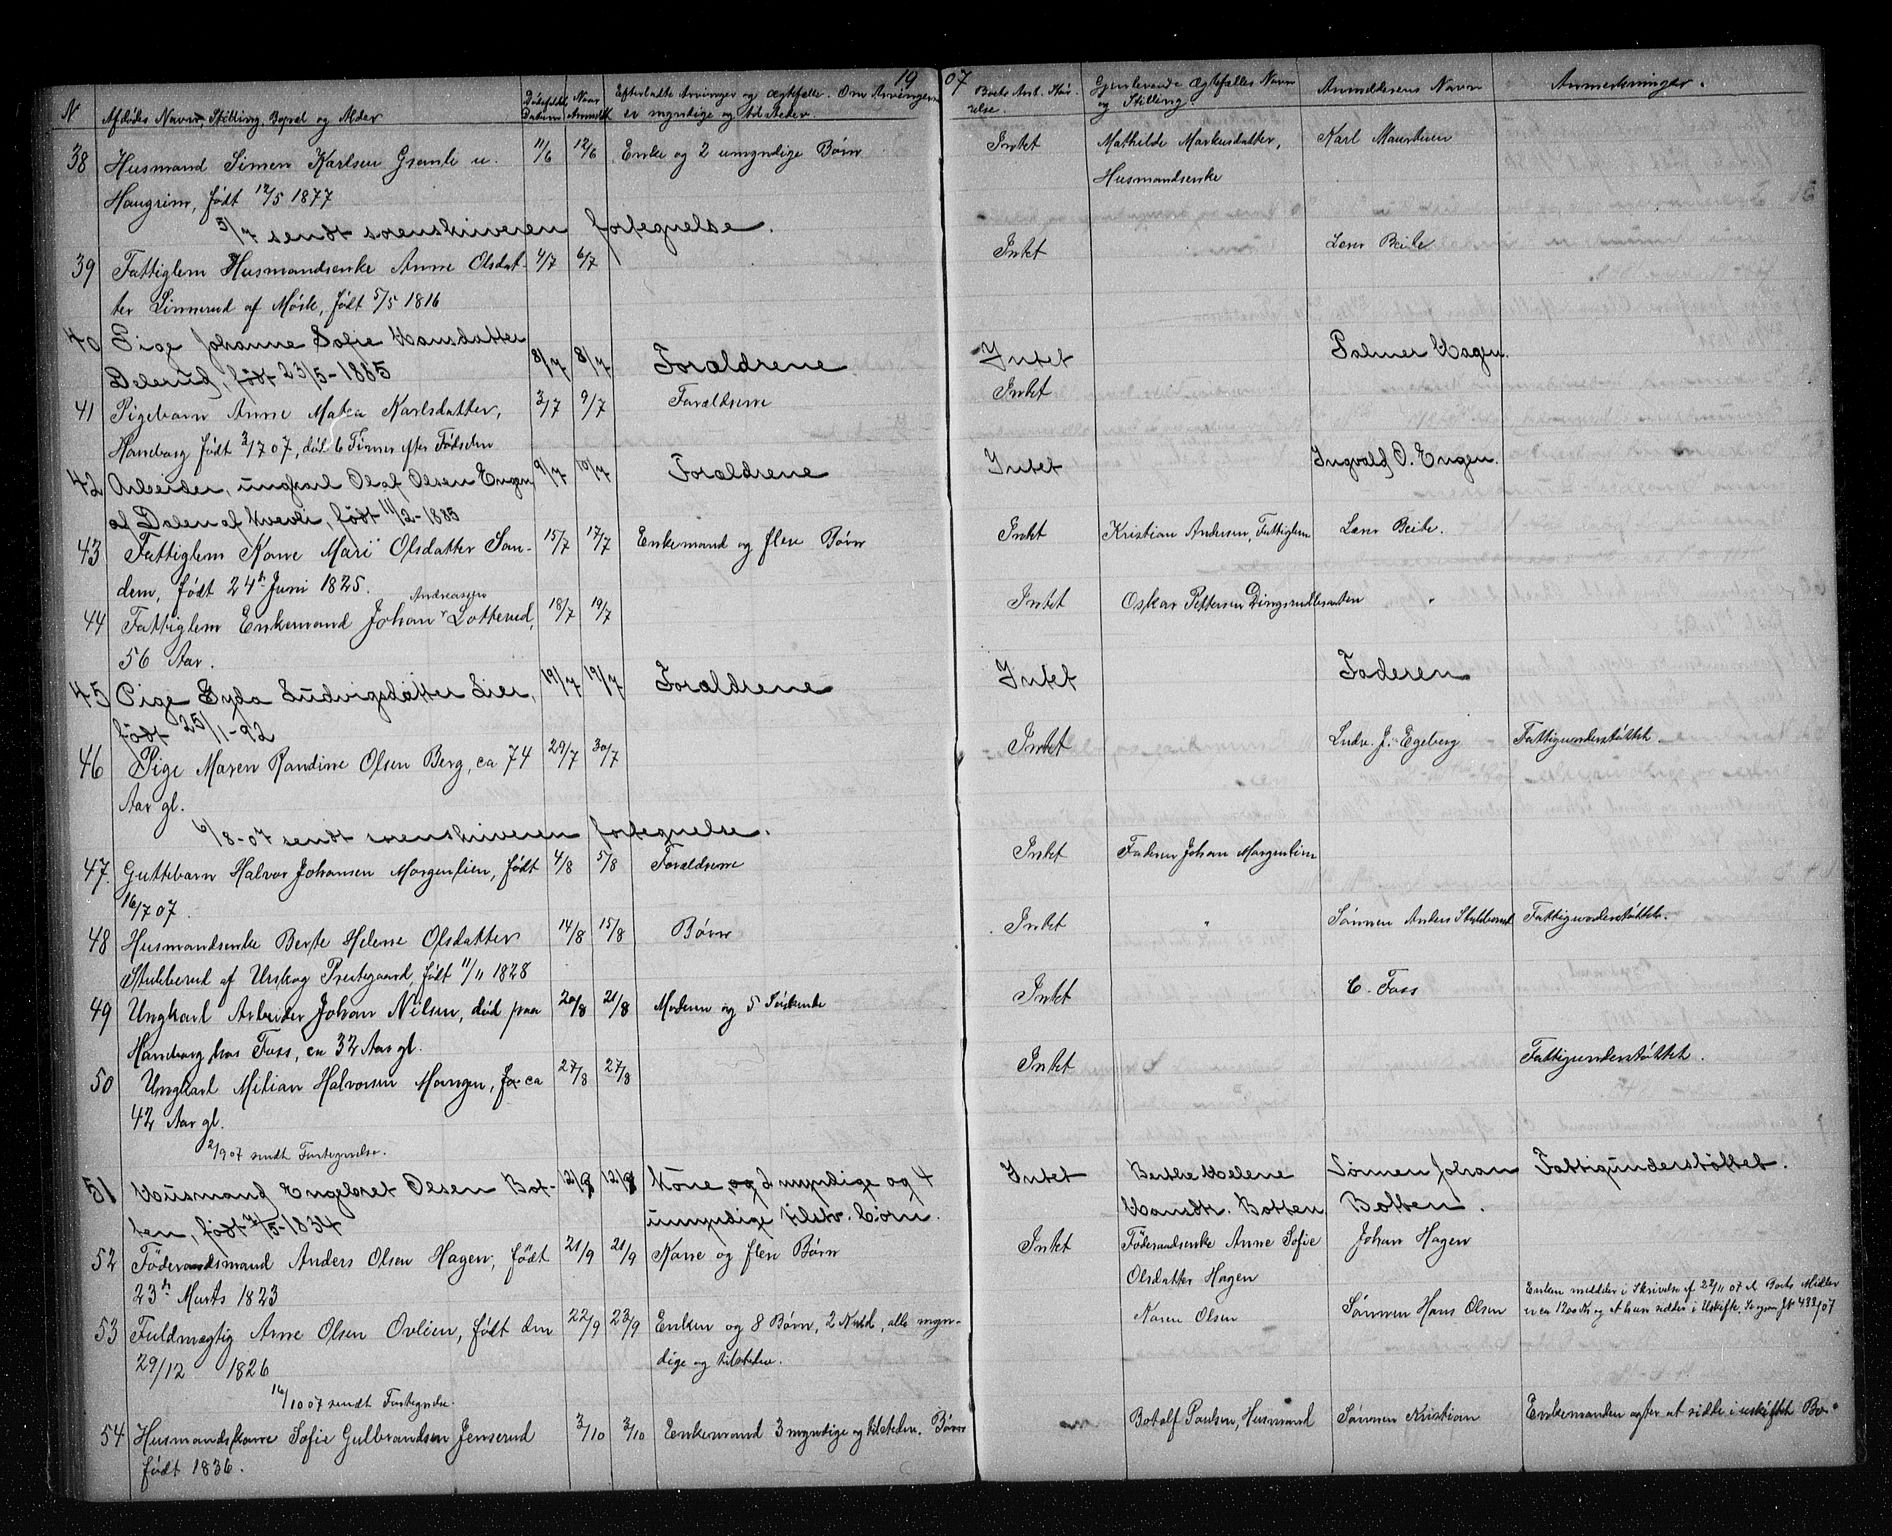 1907
N Afdødes Navn, Stilling, Bopæl og Alder Dødsfaldets Datum Naar Anmeldt Efterladte Arvinger og Ægtefælle. Om Arvingerne er myndige og tilstede Boets Ant. Størrelse. Gjenlevende Ægtefælles Navn og Stilling. Anmelderens Navn Anmerkninger.
38 Husmand Simen Karlsen u. 11/6 12/6 Enke og 2 umyndige Børn Intet Mathilde Markusdatter, Karl
Haugrim, født 12/5 1877 Husmandsenke
5/7 sendt sorenskriveren fortegnelse.
39 Fattiglem Husmandsenke Anne Olsdat- 4/7 6/7 Intet Lensm Beile
ter Linnerud af Mosle, født 5/5 1816
40 Pige Johanne Sofie Hansdatter 8/7 8/7 Forældrene Intet Palmer Hagen.
Delerud, født 23/5-1885
41 Pigebarn Anne Matea Karlsdatter, 3/7 9/7 Forældrene Intet
Haneborg født 3/7 07, død 6 Timer efter Fødselen
42 Arbeider, ungkarl Olaf Olsen Engen 9/7 10/7 Forældrene Intet Ingvald O. Engen.
af Dalen af Kvevli, født 11/2-1885
43 Fattiglem Kone Mari Olsdatter San- 15/7 17/7 Enkemand og flere Børn Intet Kristian Andersen, Fattiglem Lensm Beile.
dem, født 24de Juni 1825.
44 Fattiglem Enkemand Johan Andreassen Lotterud, 18/7 19/7 Intet Oskar Pettersen Dingsrudbraaten "
56 Aar.
45 Pige Gyda Ludvigsdatter Lier, 19/7 19/7 Forældrene Intet Faderen
født 25/1-92
46 Pige Maren Randine Olsen Berg, ca 74 29/7 30/7 Intet Ludv. J. Egeberg Fattigunderstøttet
Aar gl.
6/8-07 sendt sorenskriveren fortegnelse.
47. Guttebarn Halvor Johansen Morgenlien, født 4/8 5/8 Forældrene Intet Faderen Johan Morgenlien
16/7 07.
48 Husmandsenke Berte Helene Olsdatter 14/8 15/8 Børn Intet " Sønnen Anders Stubberud Fattigunderstøttet.
Stubberud af Urskog Prestegaard, født 11/11 1828
49 Ungkarl Arbeider Johan Nilsen, død paa 20/8 21/8 Moderen og 5 Søskende Intet C. Foss
Haneborg hos Foss, ca 32 Aar gl.
50 Ungkarl Milian Halvorsen Mangen, ca 27/8 27/8 Intet Fattigunderstøttet.
42 Aar gl.
2/9 07 sendt Fortegnelse.
51 Husmand Engebret Olsen Bot- 12/9 12/9 Kone og 2 myndige og 4 Intet Berthe Helene Sønnen Johan Fattigunderstøttet.
ten, født 7/5-1834 umyndige tilstv. børn. Hansdtr. Botten Botten.
52 Føderaadsmand Anders Olsen Hagen, født 21/9 21/9 Kone og flere Børn Intet Føderaadsenke Anne Sofie Johan Hagen
23de Marts 1823 Olsdatter Hagen
53 Fuldmægtig Arne Olsen Ovlien, født den 22/9 23/9 Enken og 8 Børn, 2 Kuld, alle myn- Karen Olsen Sønnen Hans Olsen Enken melder i Skrivelse af 22/11 07 at Boets Midler
29/12 1826 dige og tilstede. er ca 1200 Kr og at hun sidder i Uskifte. Se 433/07
16/10 07 sendt Fortegnelse.
54 Husmandskone Sofie Gulbrandsen Jenserud 3/10 3/10 Enkemand 3 myndige og tilstedev. Børn Botolf Paulsen, Husmand Sønnen Kristian Enkemanden agter at sidde i uskiftet Bo.
født 1836.